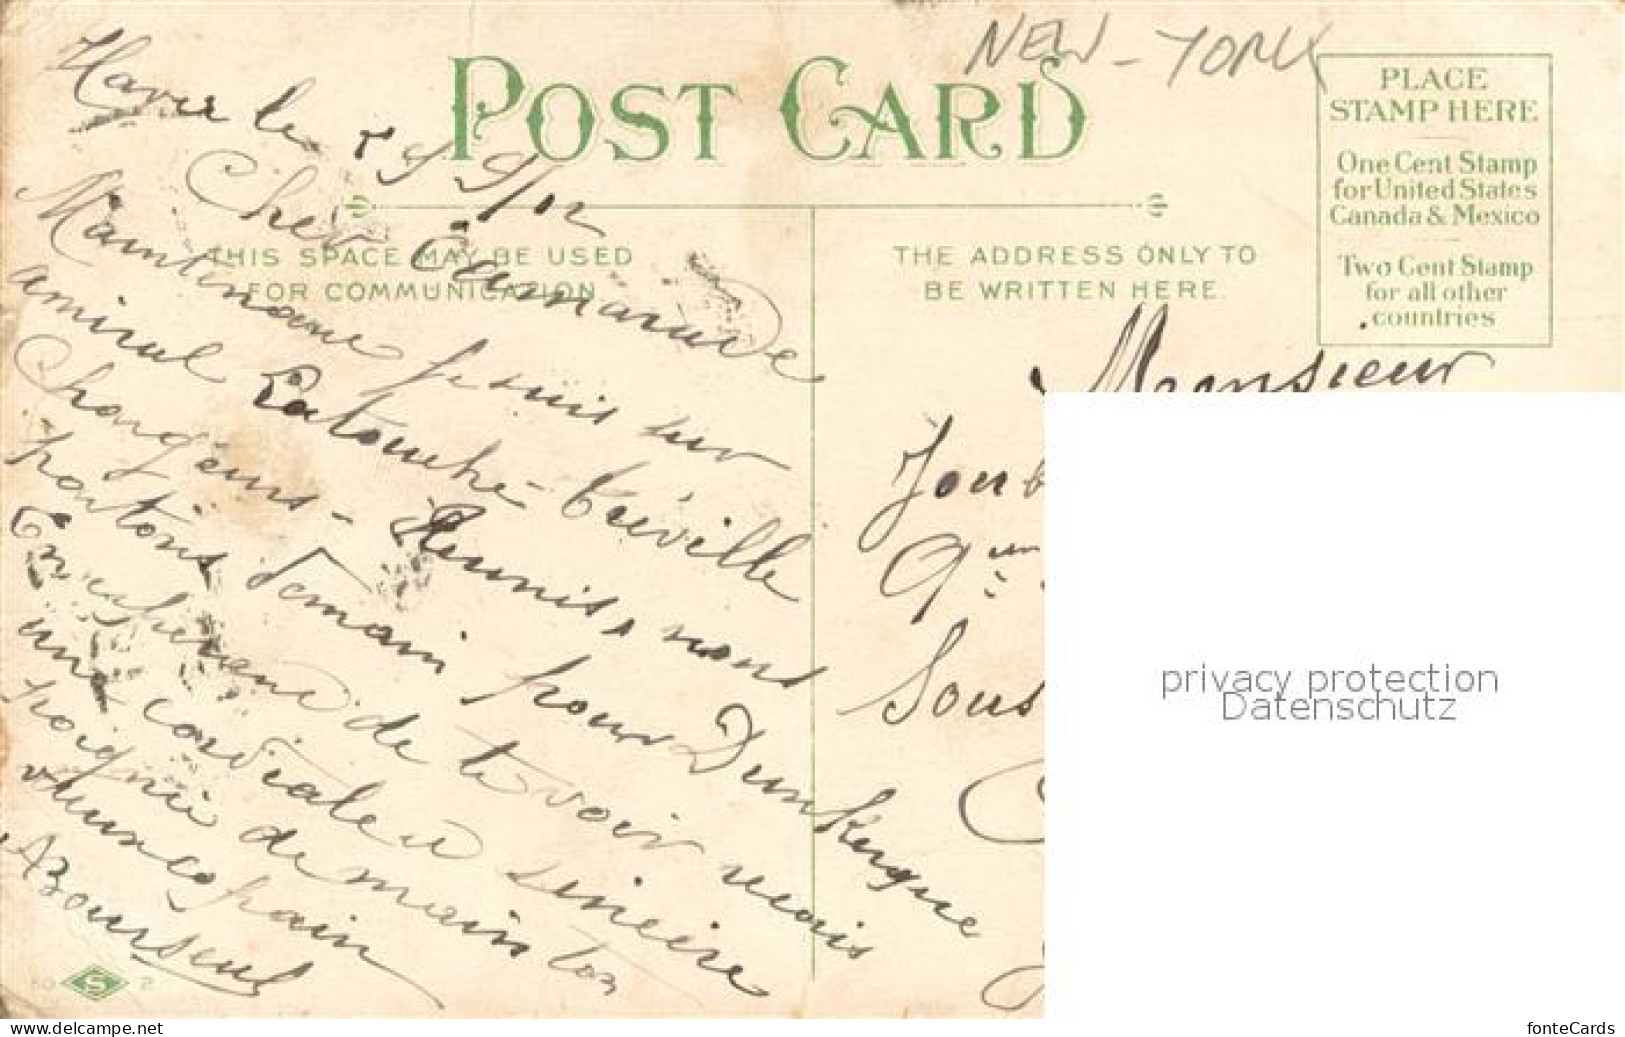 NEW-YORK
POST CARD
PLACE
STAMP HERE
One Cent Stamp
for United States
Canada & Mexico
Two Cent Stamp
for all other
countries
THIS SPACE MAY BE USED
FOR COMMUNICATION
THE ADDRESS ONLY TO
BE WRITTEN HERE.
Havre le
Cher Camarade
Maintenant je suis sur
amiral Latouche-Tréville
Chargeurs-Réunis, nous
partons demain pour Dunkerque
de te voir reçois
une cordiale et sincère
poignée de main ton
vieux copain
ABourseul
Monsieur
Joub
Qu
Sous
privacy protection
Datenschutz
50 S 2
www.delcampe.net
fonteCards